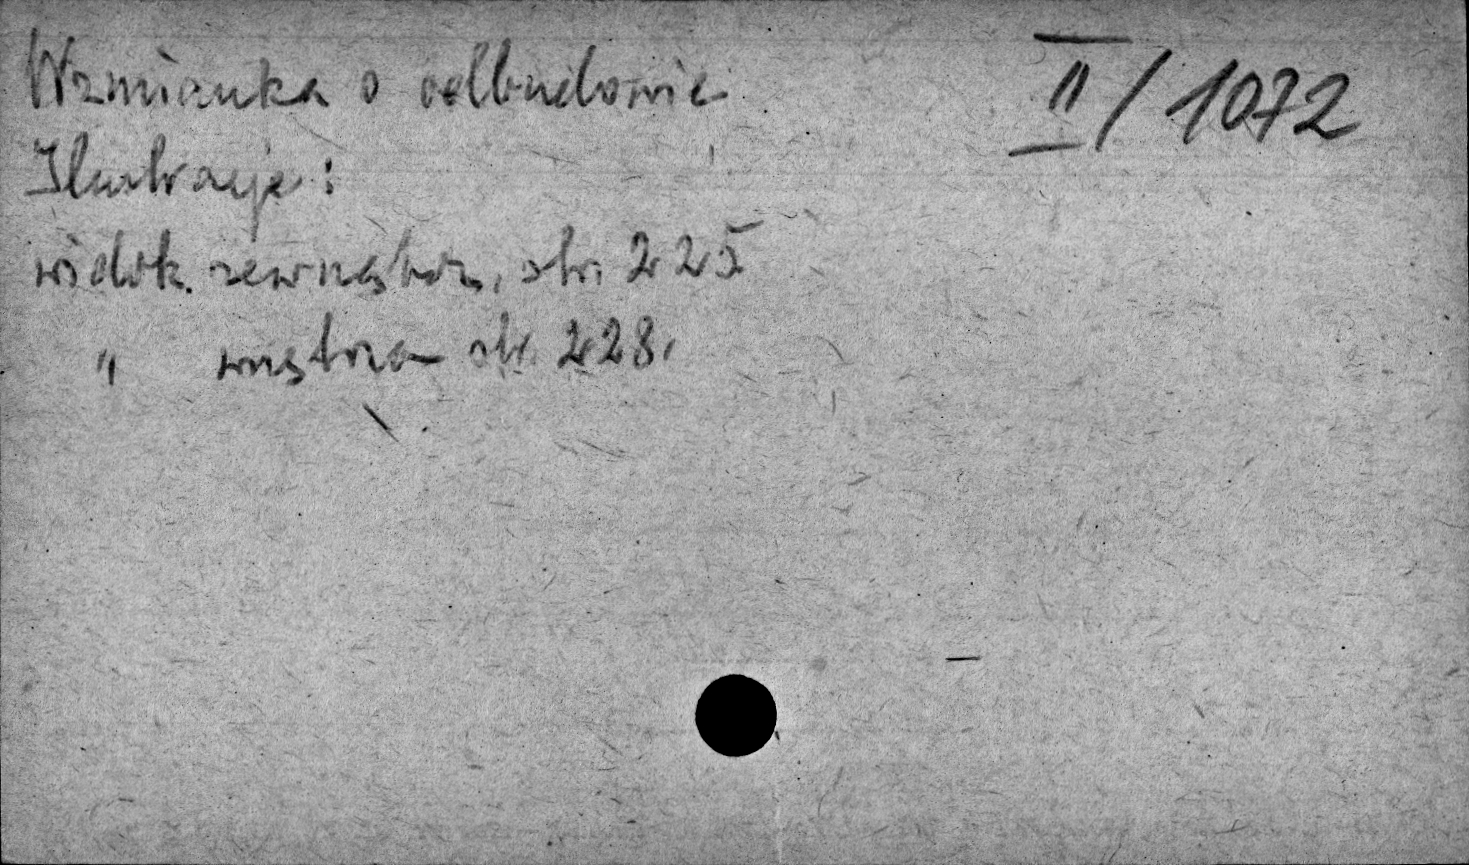 Wzmianka o odbudowie
II/1072
Ilustracje:
widok zewnętrz, str. 225
" wnętrza str. 228.